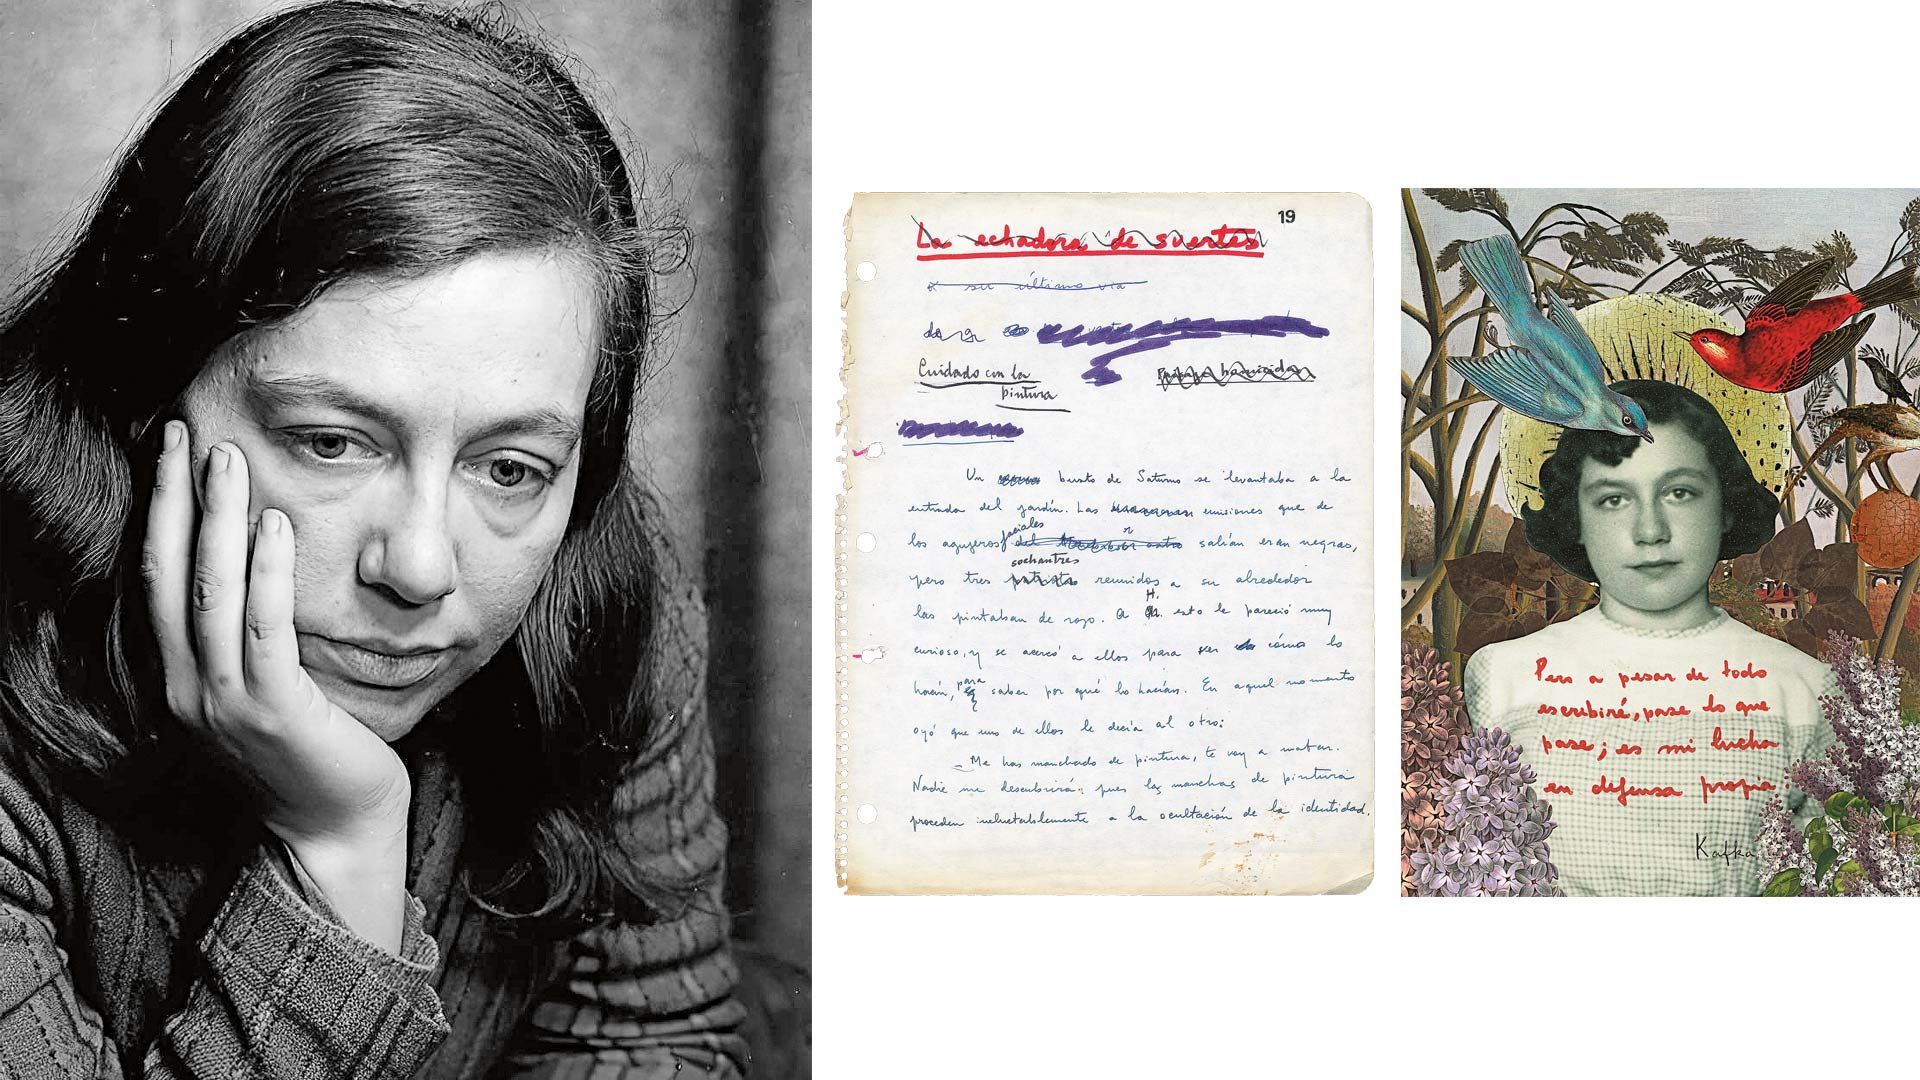 19
La echadora de suertes
Cuidado con la
pintura
Un busto de Saturno se levantaba a la
entrada del jardín. Las emisiones que de
los agujeros faciales salían eran negras,
pero tres sochantres reunidos a su alrededor
las pintaban de rojo. A H. esto le pareció muy
curioso, y se acercó a ellos para ver cómo lo
hacían, para saber por qué lo hacían. En aquel momento
oyó que uno de ellos le decía al otro:
– Me has manchado de pintura, te voy a matar.
Nadie me descubrirá, pues las manchas de pintura
proceden ineluctablemente a la ocultación de la identidad.
Pero a pesar de todo
escribiré, pase lo que
pase; es mi lucha
en defensa propia.
Kafka